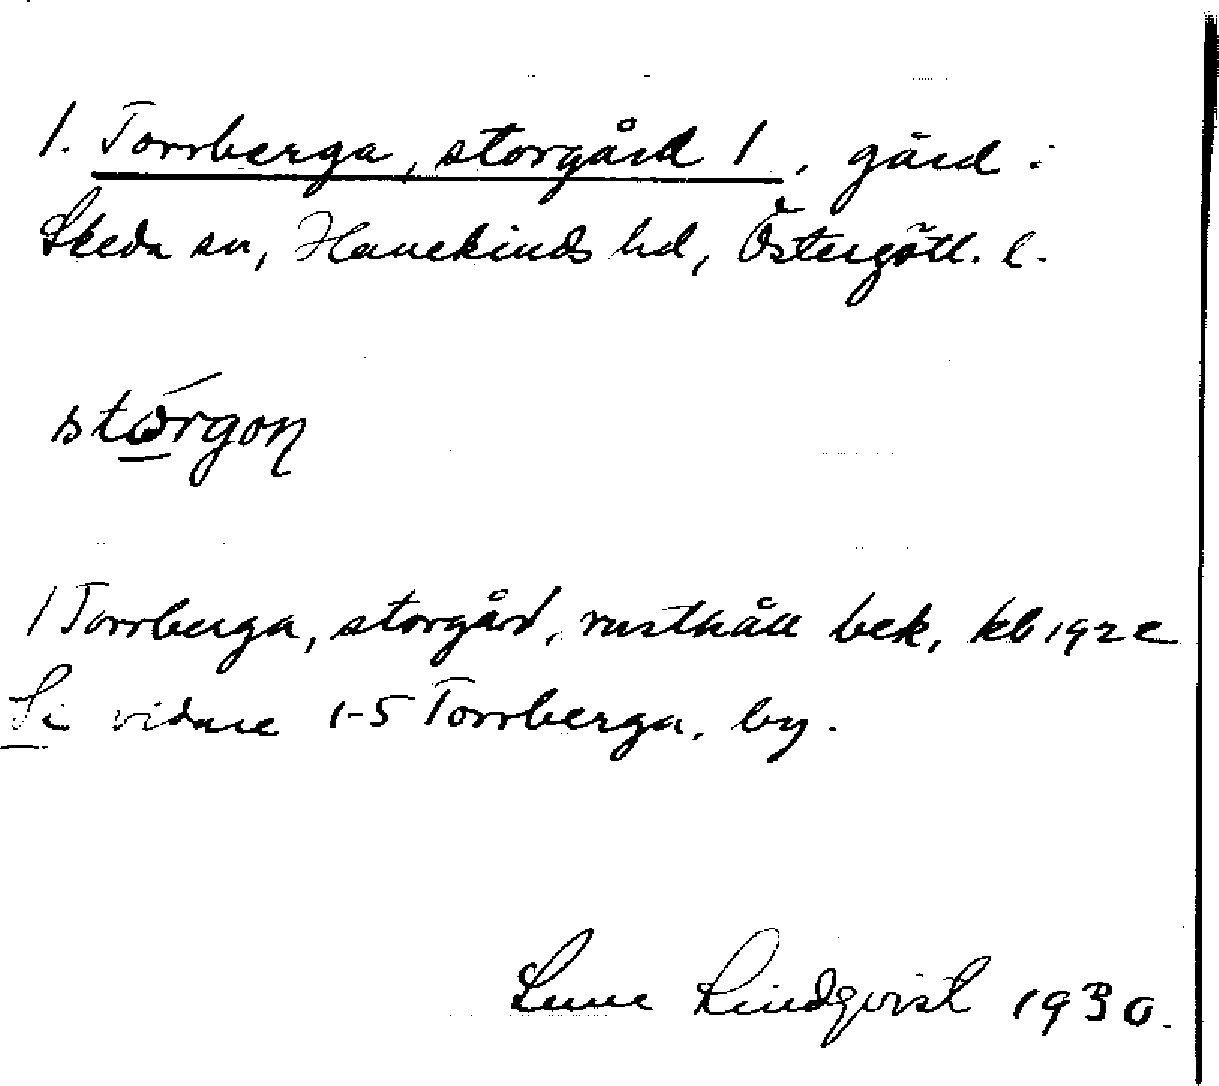 1. Torrberga, storgård 1, gård i
Skeda sn, Hanekinds hd, Östergötl. l.
stórgon
1 Torrberga, storgård, rusthåll bek, kb 192
Se vidare 1-5 Torrberga, by.
Sune Lindqvist 1930.